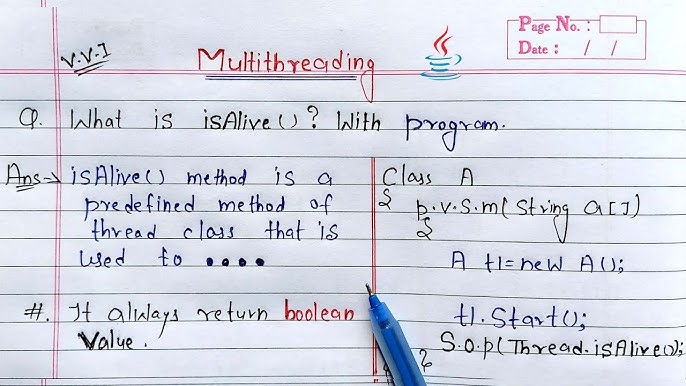 Page No. :
Date : / /
V.V.I
Multithreading
Q. What is isAlive()? With program.
Ans→ isAlive() method is a
predefined method of
thread class that is
used to ....
#. It always return boolean
Value.
Class A
{ p.v.s.m(String a[])
{
A t1=new A();
t1.Start();
S.o.p(Thread.isAlive();